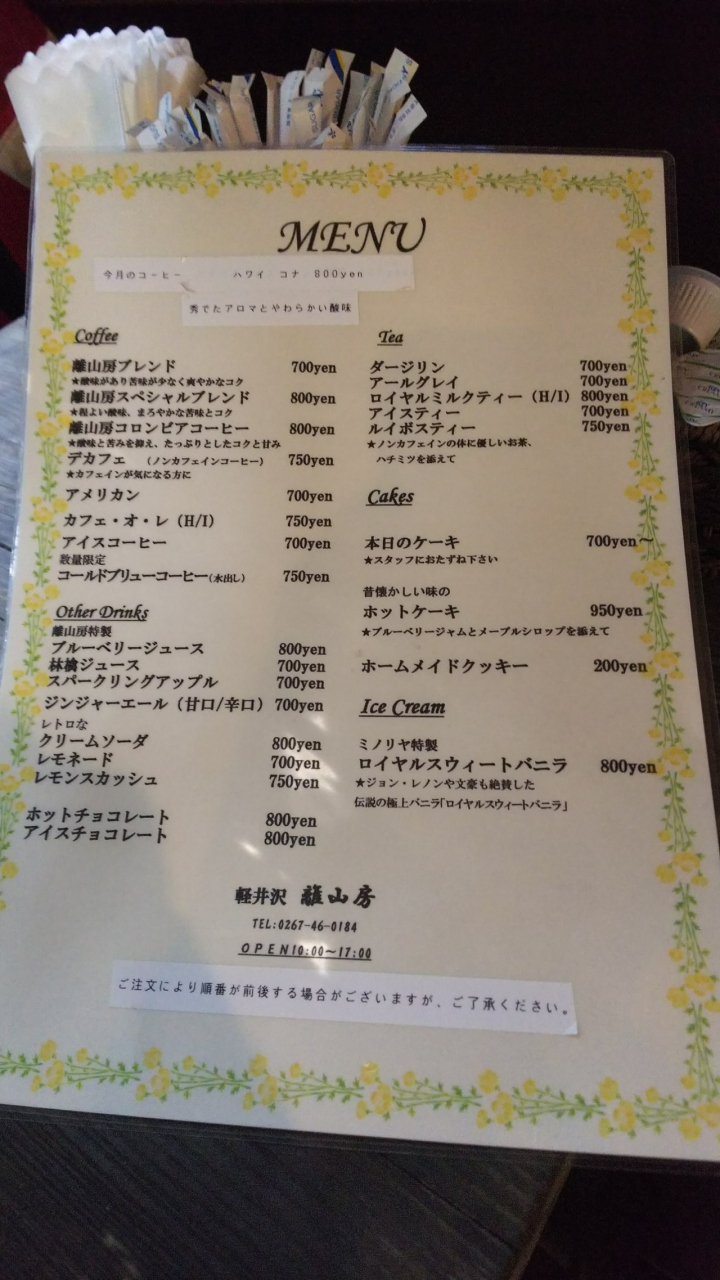 MENU
今月のコーヒー ハワイ コナ 800yen
秀でたアロマとやわらかい酸味
Coffee
離山房ブレンド 700yen
★酸味があり苦味が少なく爽やかなコク
離山房スペシャルブレンド 800yen
★程よい酸味、まろやかな苦味とコク
離山房コロンビアコーヒー 800yen
★酸味と苦みを抑え、たっぷりとしたコクと甘み
デカフェ (ノンカフェインコーヒー) 750yen
★カフェインが気になる方に
アメリカン 700yen
カフェ・オ・レ (H/I) 750yen
アイスコーヒー 700yen
数量限定
コールドブリューコーヒー(水出し) 750yen
Other Drinks
離山房特製
ブルーベリージュース 800yen
林檎ジュース 700yen
スパークリングアップル 700yen
ジンジャーエール (甘口/辛口) 700yen
レトロな
クリームソーダ 800yen
レモネード 700yen
レモンスカッシュ 750yen
ホットチョコレート 800yen
アイスチョコレート 800yen
Tea
ダージリン 700yen
アールグレイ 700yen
ロイヤルミルクティー (H/I) 800yen
アイスティー 700yen
ルイボスティー 750yen
★ノンカフェインの体に優しいお茶、
ハチミツを添えて
Cakes
本日のケーキ 700yen～
★スタッフにおたずね下さい
昔懐かしい味の
ホットケーキ 950yen
★ブルーベリージャムとメープルシロップを添えて
ホームメイドクッキー 200yen
Ice Cream
ミノリヤ特製
ロイヤルスウィートバニラ 800yen
★ジョン・レノンや文豪も絶賛した
伝説の極上バニラ「ロイヤルスウィートバニラ」
軽井沢 離山房
TEL:0267-46-0184
OPEN10:00～17:00
ご注文により順番が前後する場合がございますが、ご了承ください。